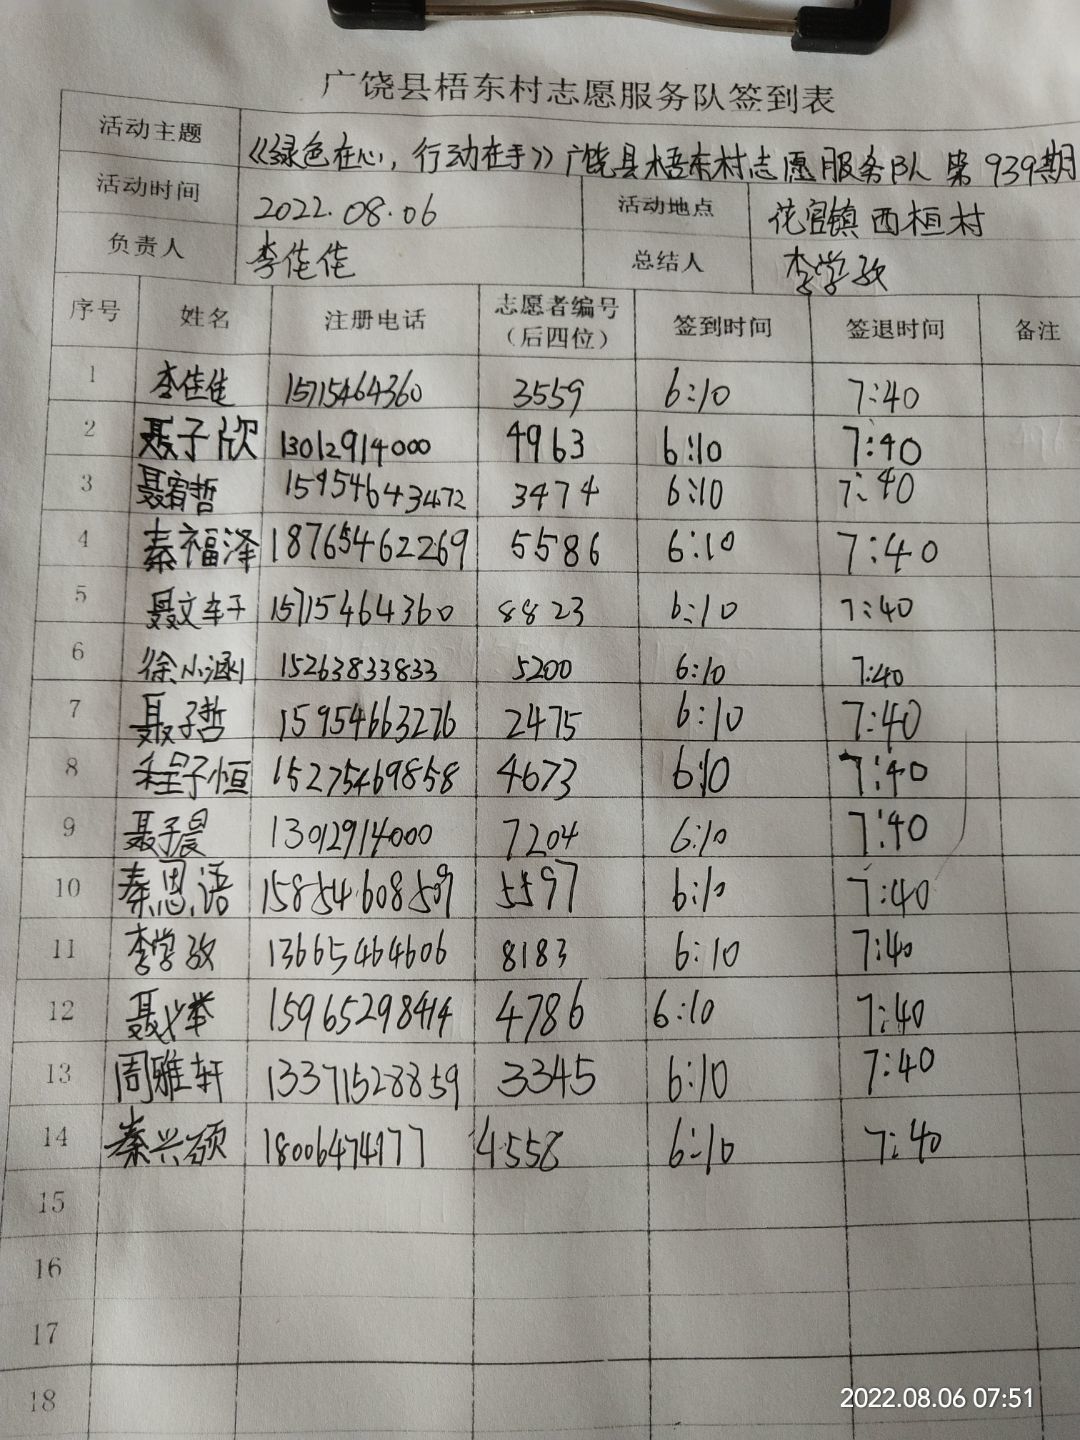 广饶县梧东村志愿服务队签到表
活动主题 《绿色在心,行动在手》广饶县梧东村志愿服务队 第939期
活动时间 2022.08.06 活动地点 花官镇西桓村
负责人 李佳佳 总结人 李学孜
序号 姓名 注册电话 志愿者编号(后四位) 签到时间 签退时间 备注
1 李佳佳 15715464360 3559 6:10 7:40
2 聂子欣 13012914000 4963 6:10 7:40
3 聂宥哲 15954643472 3474 6:10 7:40
4 秦福泽 18765462269 5586 6:10 7:40
5 聂文轩 15715464360 8823 6:10 7:40
6 徐小涵 15263833833 5200 6:10 7:40
7 聂子哲 15954663276 2475 6:10 7:40
8 程子恒 15275469858 4673 6:10 7:40
9 聂子晨 13012914000 7204 6:10 7:40
10 秦思语 15854608509 5597 6:10 7:40
11 李学孜 13665464606 8183 6:10 7:40
12 聂义举 15965298414 4786 6:10 7:40
13 周雅轩 13371528859 3345 6:10 7:40
14 秦兴硕 18006474177 4558 6:10 7:40
15
16
17
18
2022.08.06 07:51